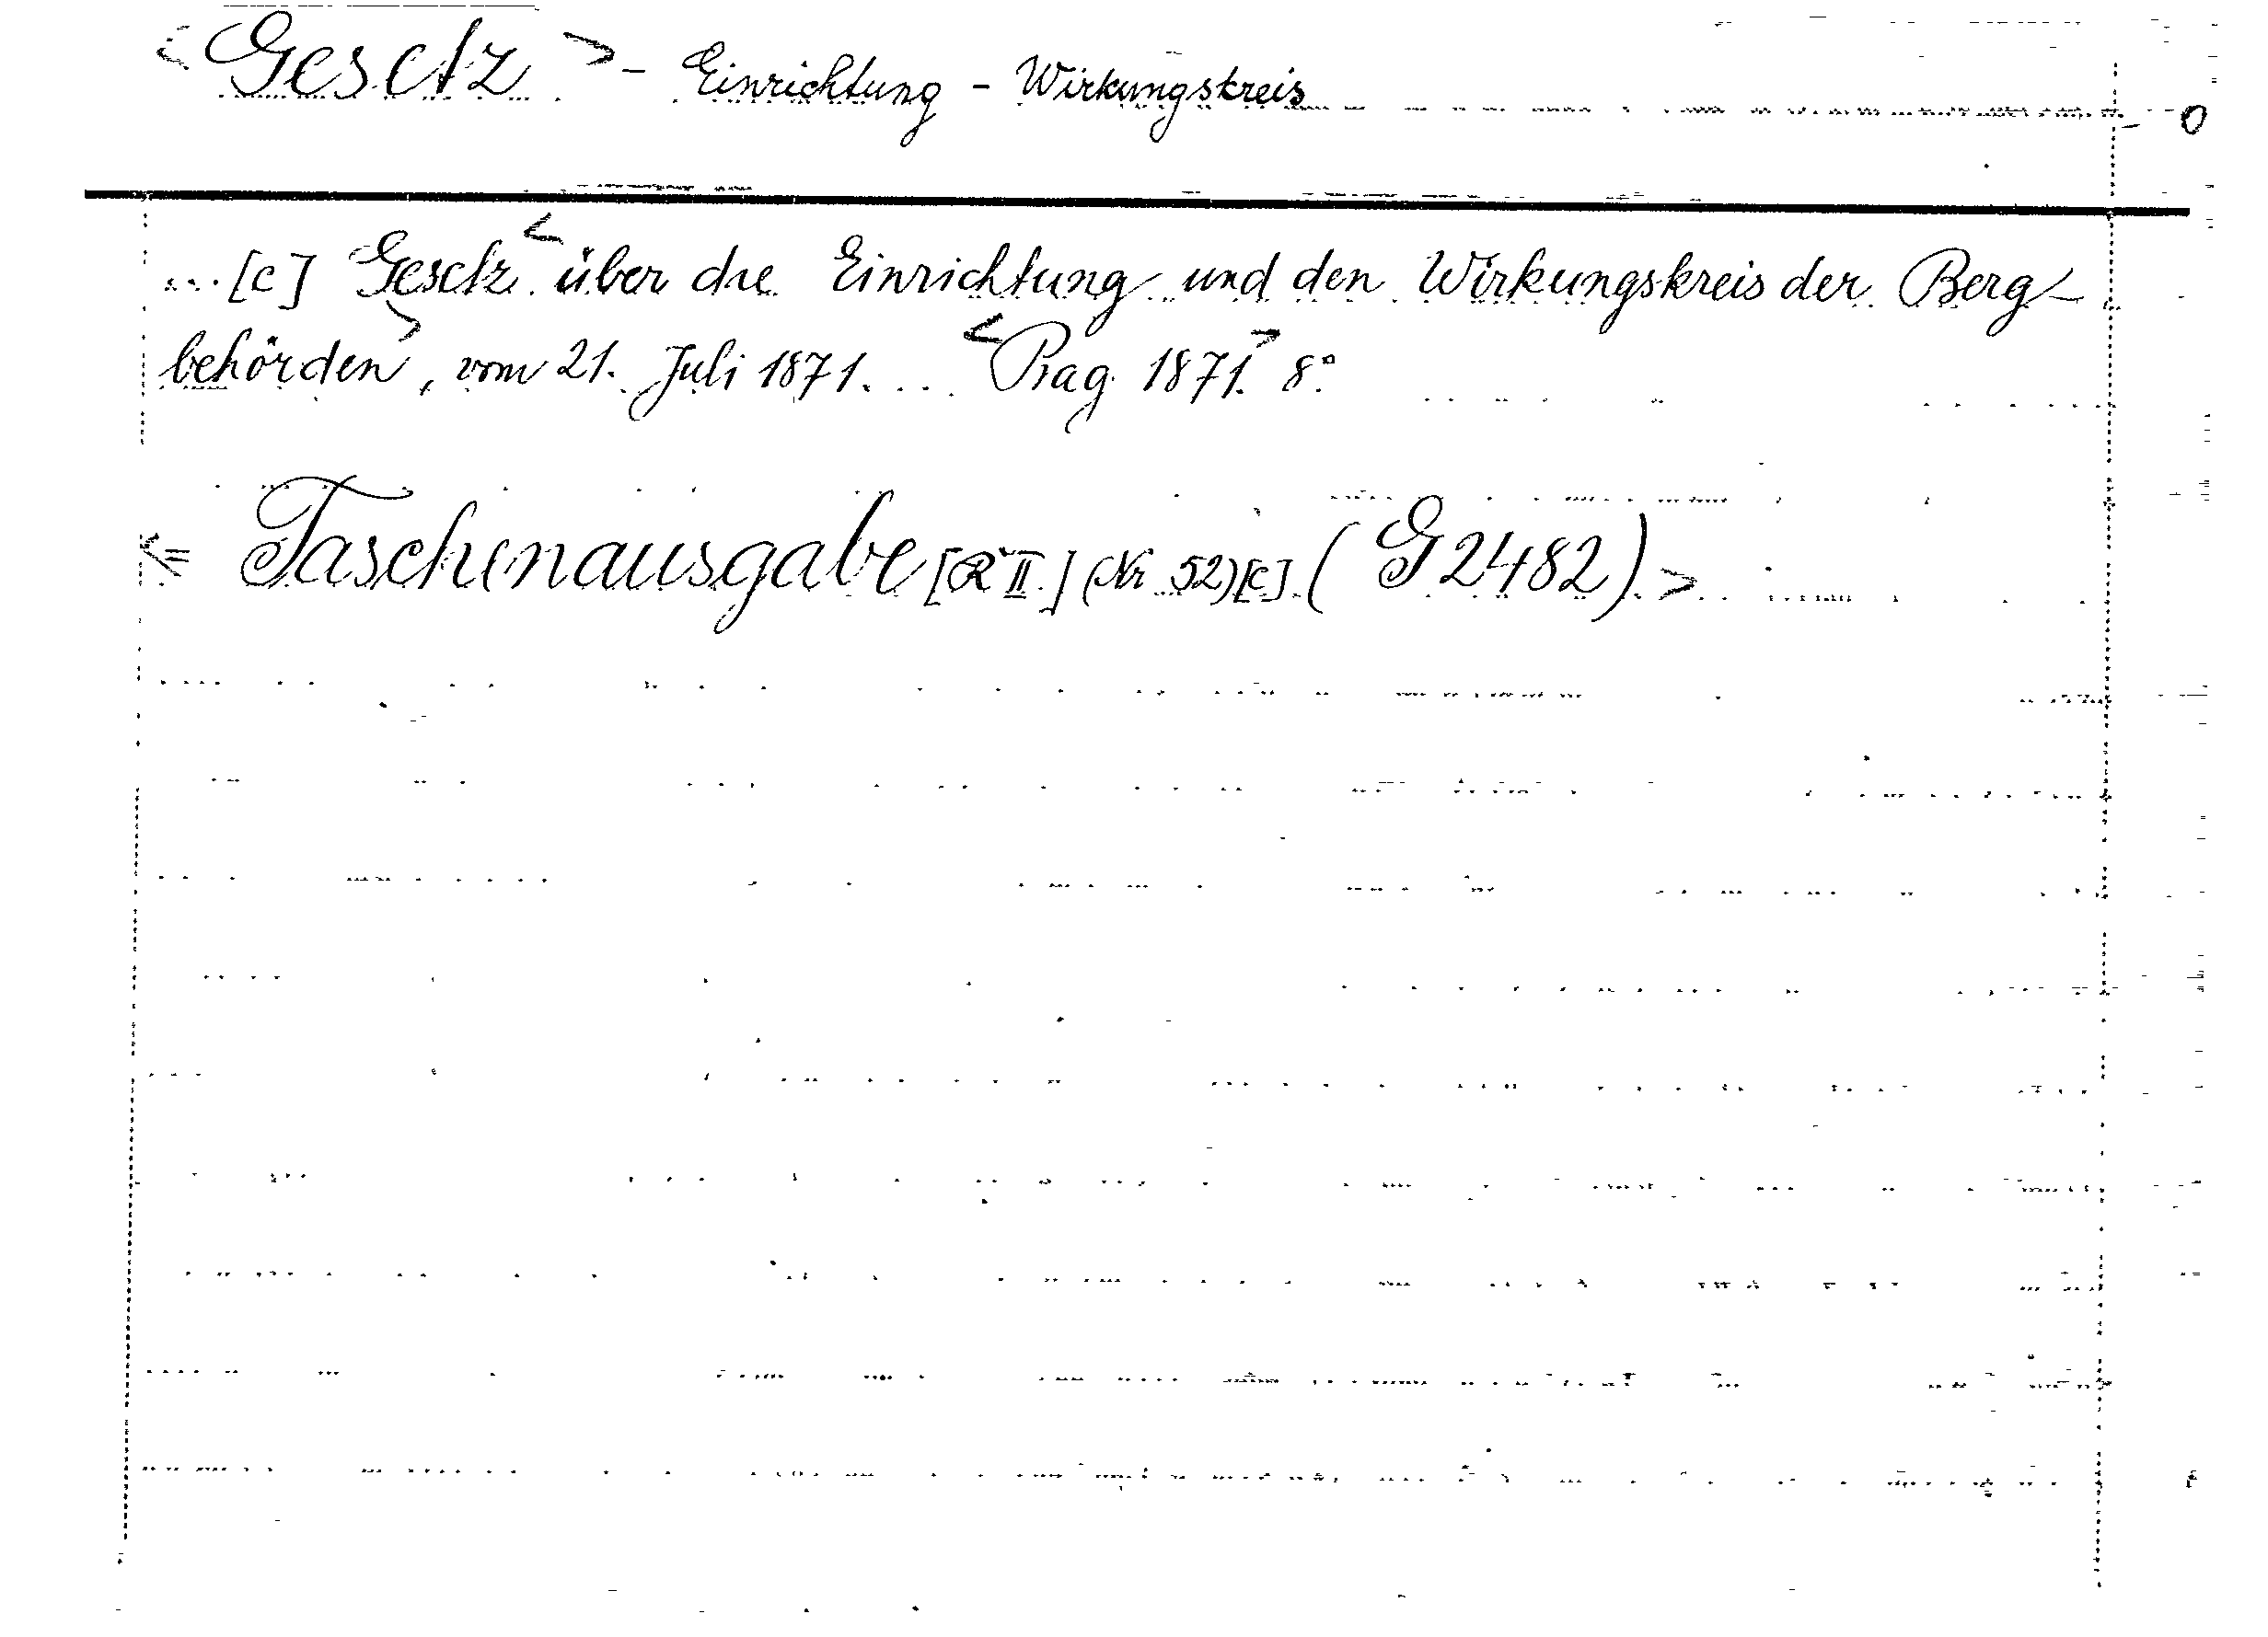 <Gesetz> - Einrichtung - Wirkungskreis
o
...[c] Gesetz <über die Einrichtung und den Wirkungskreis der Berg-
behörden>, vom 21. Juli 1871. ... <Prag 1871.> 8°.
<= Taschenausgabe [R II.] (Nr 52)[c] (G 2482)>